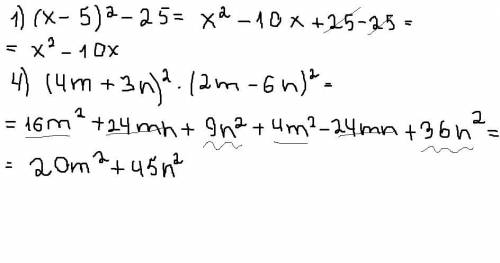 1) (x - 5)² - 25 = x² - 10x + 25 - 25 =
= x² - 10x
4) (4m + 3n)² · (2m - 6n)² =
= 16m² + 24mn + 9n² + 4m² - 24mn + 36n² =
= 20m² + 45n²